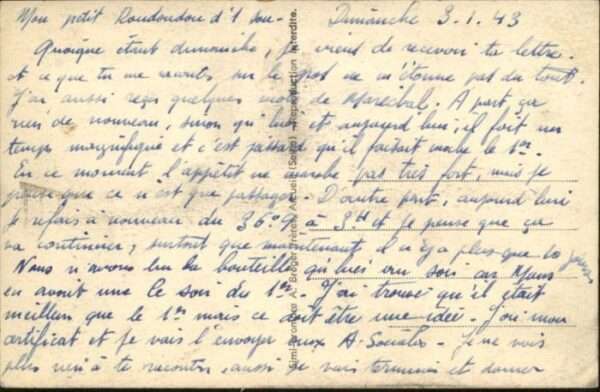 Mon petit Roudoudou d'1 sou - Dimanche 3.1.43
Quoique étant dimanche, je viens de recevoir ta lettre.
et ce que tu me racontes sur le gros ne m'étonne pas du tout.
J'ai aussi reçu quelques mots de Maréchal. A part ça
rien de nouveau, sinon qu'hier et aujourd'hui, il fait un
temps magnifique et c'est qu'il faisait moche le 1er.
En ce moment l'appétit ne marche pas très fort, mais je
pense que ce n'est que passager. D'autre part, aujourd'hui
je refais à nouveau du 36°9 à 3H et je pense que ça
va continuer, surtout que maintenant il n'y a plus que 10 jours
Nous n'avons bu la bouteille qu'hier au soir car Mans
en avait une le soir du 1er. J'ai trouvé qu'il était
meilleur que le 1er mais ce doit être une idée. J'ai mon
certificat et je vais l'envoyer aux A-Sociales. Je ne vois
plus rien à te raconter, aussi je vais terminer et donner
Reproduction interdite.